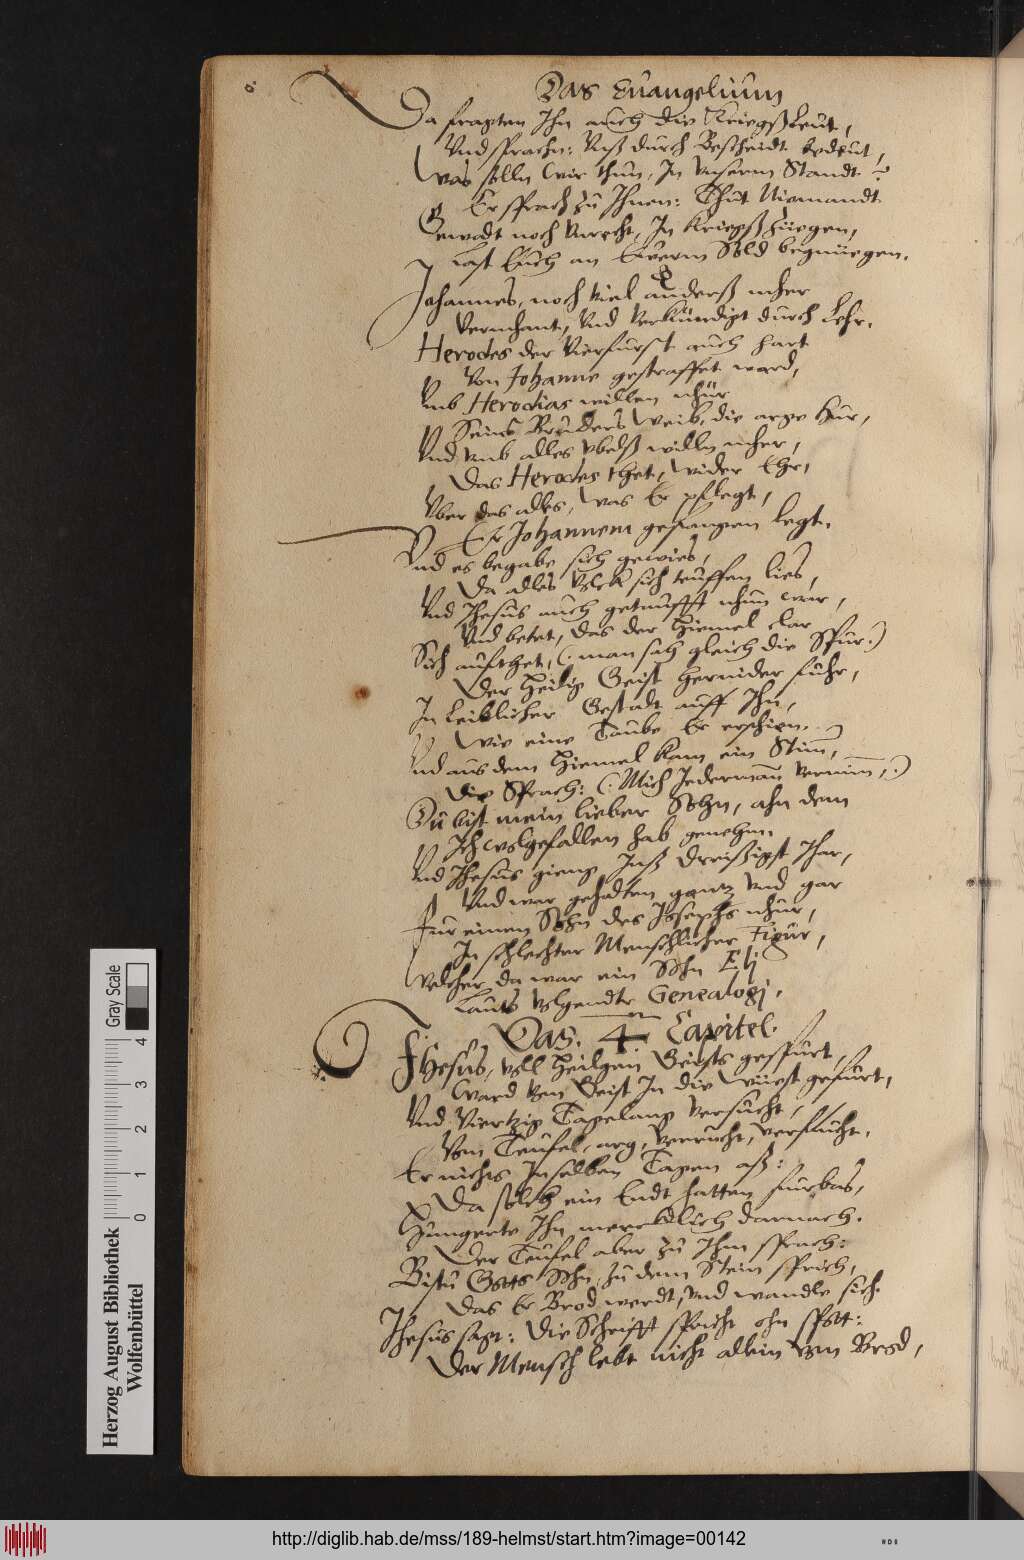 Das Euangelium
Da fragten Ihn auch die Kriegßleut,
Vnd sprachn: Vnß durch Bescheidt bedeut,
Was solln wir thun, In Vnserm Standt?
Er sprach zu Ihnen: Thut Niemandt
Gewalt noch Vnrecht, In Kriegß Zuegen,
Last Euch an Euerm Sold begnuegen.
Johannes, noch viel anderß mher
Vermhant, Vnd Verkündigt durch Lehr.
Herodes der Vierfurst auch hart
Von Johanne gestraffet ward,
Vmb Herodias willen nhur
Seins Bruders Weib, die arge Hur,
Vnd vmb alles vbelß willn mher,
Das Herodes thet, wider Ehr,
Vber das alles, was Er pflegt,
Er Johannem gefangen legt.
Vnd es begabe sich gewies,
Da alles Volck sich teuffen lies,
Vnd Jhesus auch getaufft nhun war,
Vnd betet, das der Hiemel clar
Sich aufthet, (: man sah gleich die Spur:)
Der Heilig Geist hernider fuhr,
In Leiblicher Gestalt auff Ihn,
Wie eine Taube Er erschien.
Vnd aus dem Hiemel kam ein Stim,
Die Sprach: (: Mich Jederman vernim,:)
Du bist mein lieber Sohn, ahn dem
Ich wolgefallen hab genehm.
Vnd Jhesus gieng Inß Dreißigst Jhar,
Vnd war gehalten gantz vnd gar
Fur einen Sohn des Josephs nhur,
In schlechter Menschlicher Figur,
Welcher da war ein Sohn Elj
Lauts volgendtr Genealogj.
Das. 4 Capitel.
Jhesus, voll Heilgen Geists gespürt,
Ward vom Geist In die Wüest gefürt,
Vnd Viertzig Tagelang versucht,
Vom Teufel, arg, verrucht, verflucht.
Er nichts In selben Tagen aß:
Da solch ein Endt hatten furbas,
Hungerte Ihn mercklich darnach.
Der Teufel aber zu Ihm sprach:
Bistu Gotts Sohn, zu dem Stein sprich,
Das Er Brod werdt, vnd wandle sich.
Jhesus sagt: Die Schrifft spricht ohn spott:
Der Mensch lebt nicht allein vom Brod,
Herzog August Bibliothek
Wolfenbüttel
0 1 2 3 4
Gray Scale
http://diglib.hab.de/mss/189-helmst/start.htm?image=00142